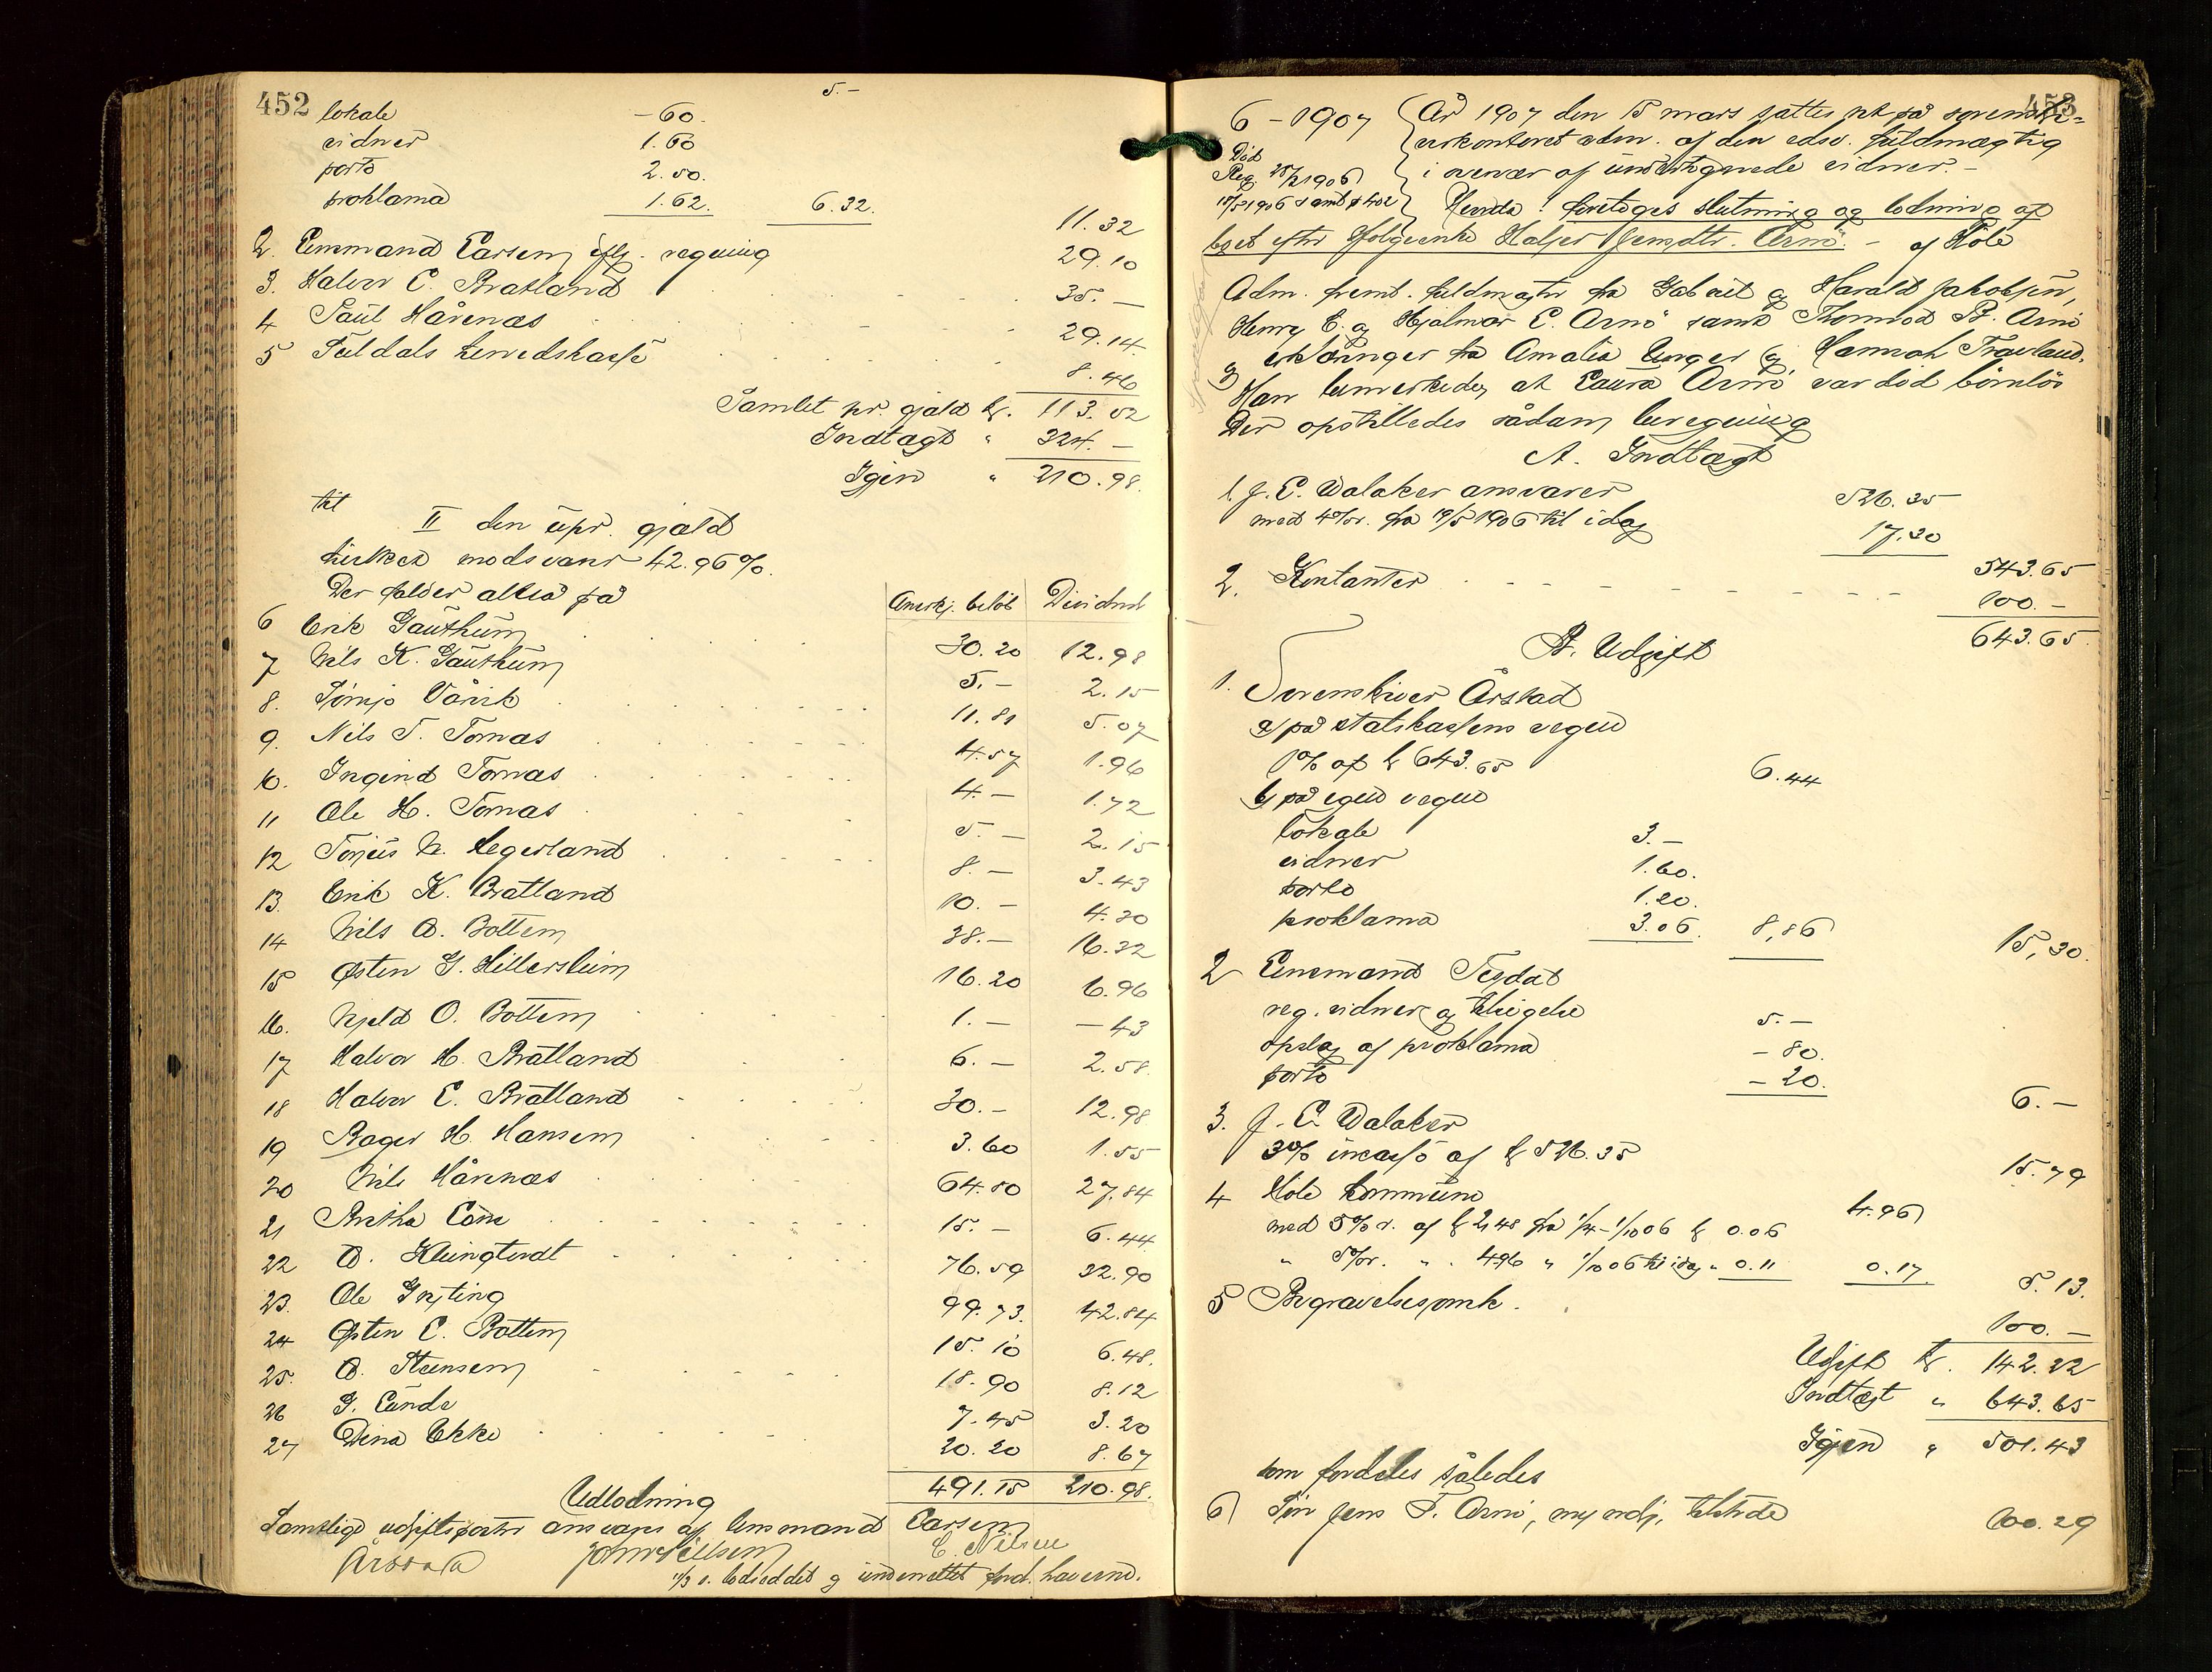 452
5.-
lokale -60.
vidner 1.60
porto 2.50.
proklama 1.62. 6.32.
11.32
2. Lensmand Larsen iflg. regning 29.10
3. Halvor E. Bratland 35.-
4 Paul Hårenæs 29.14
5 Suldals herredskasse 8.46
Samlet pr. gjæld kr. 113.02
Indtægt " 324.-
Igjen " 210.98.
til
II den upr. gjæld
hvilket modsvarer 42.96 %.
Der falder altså på
Anerkj. beløb Dividend
6 Erik Gauthun 30.20 12.98
7 Nils K. Gauthun 5.- 2.15
8. Vårvik 11.81 5.07
9. Nils T. Tornæs 4.57 1.96
10. Ingvind Tornæs 4.- 1.72
11 Ole H. Tornæs 5.- 2.15
12 Tørjeis N. Hegerland 8.- 3.43
13. Erik K. Bratland 10.- 4.30
14 Nils A. Bottem 38.- 16.32
15 Østen G. Hillersheim 16.20 6.96
16. Kjeld O. Bottem 1.- -43
17 Halvor H. Bratland 6.- 2.58.
18 Halvor E. Bratland 30.- 12.98
19 Roger H. Hansen 3.60 1.55
20 Nils Hårenæs 64.80 27.84
21 Bertha Lone 15.- 6.44
22 A. Klingtvedt 76.59 32.90
23. Ole Grjting 99.73. 42.84
24 Østen E. Bottem 15.10 6.48.
25. A. Steensen 18.90 8.12
26 G. Lunde 7.45 3.20
27 Dina Ekke 20.20 8.67
491.15 210.98.
Udlodning
Samtlige udgiftsposter ansvares af lensmand Larsen
Årstad John Nilsen E. Nilsen
11/3 s. lodseddel og underrettet ford. haverne.
453
6 - 1907
Død
Reg. 28/2 1906
18/5 1906 samt p 402
År 1907 den 15 mars sattes ret på sorenskri=
verkontoret adm. af den edsv. fuldmægtig
i overvær af undertegnede vidner. -
Hvorda: foretoges slutning og lodning af
boet efter folgeenke Haljer Jensdtr. Arnø. - af Hole
Adm. freml. fuldmagter fra Gabriel og Harald Jakobsen,
Henry E. og Hjalmar E. Arnø samt Thormod B. Arnø
og erklæringer fra Amalia Unger og Hannah Travland.
Han bemerkede, at Laura Arnø var død børnløs
Der opstilledes sådan beregning
A. Indtægt
1. J. E. Walaker ansvarer 526.35
med 4% r. fra 19/5 1906 til idag 17.30
543.65
2. Kontanter 100.-
643.65.
B. Udgift
1. Sorenskriver Årstad
a) på statskassens vegne
1% af kr 643.65 6.44
b) på egne vegne
lokale 3.-
vidner 1.60.
porto 1.20.
proklama 3.06. 8,86
15,30.
2 Lensmand Tegdal
reg. vidner og tilsigelse 5.-
opslag af proklama -80.
porto -20.
6.-
3. J. E. Walaker
3% inkasso af kr 526.35 15.79
4 Hole kommune 4.96
med 5% r. af kr 2,48 fra 1/4-1/10 06 kr 0.06
" 5% r. " " 4.96 " 1/10 06 til idag " 0.11 0.17
5.13.
5 Begravelsesomk. 100.-
Udgift kr. 142.22
Indtægt " 643.65
Igjen " 501.43
som fordeles således
6) Søn Jens T. Arnø, myndig, tilstede 100.29